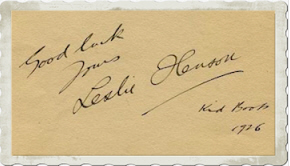 Good luck
Yours
Leslie Henson
Kid Boots
1926